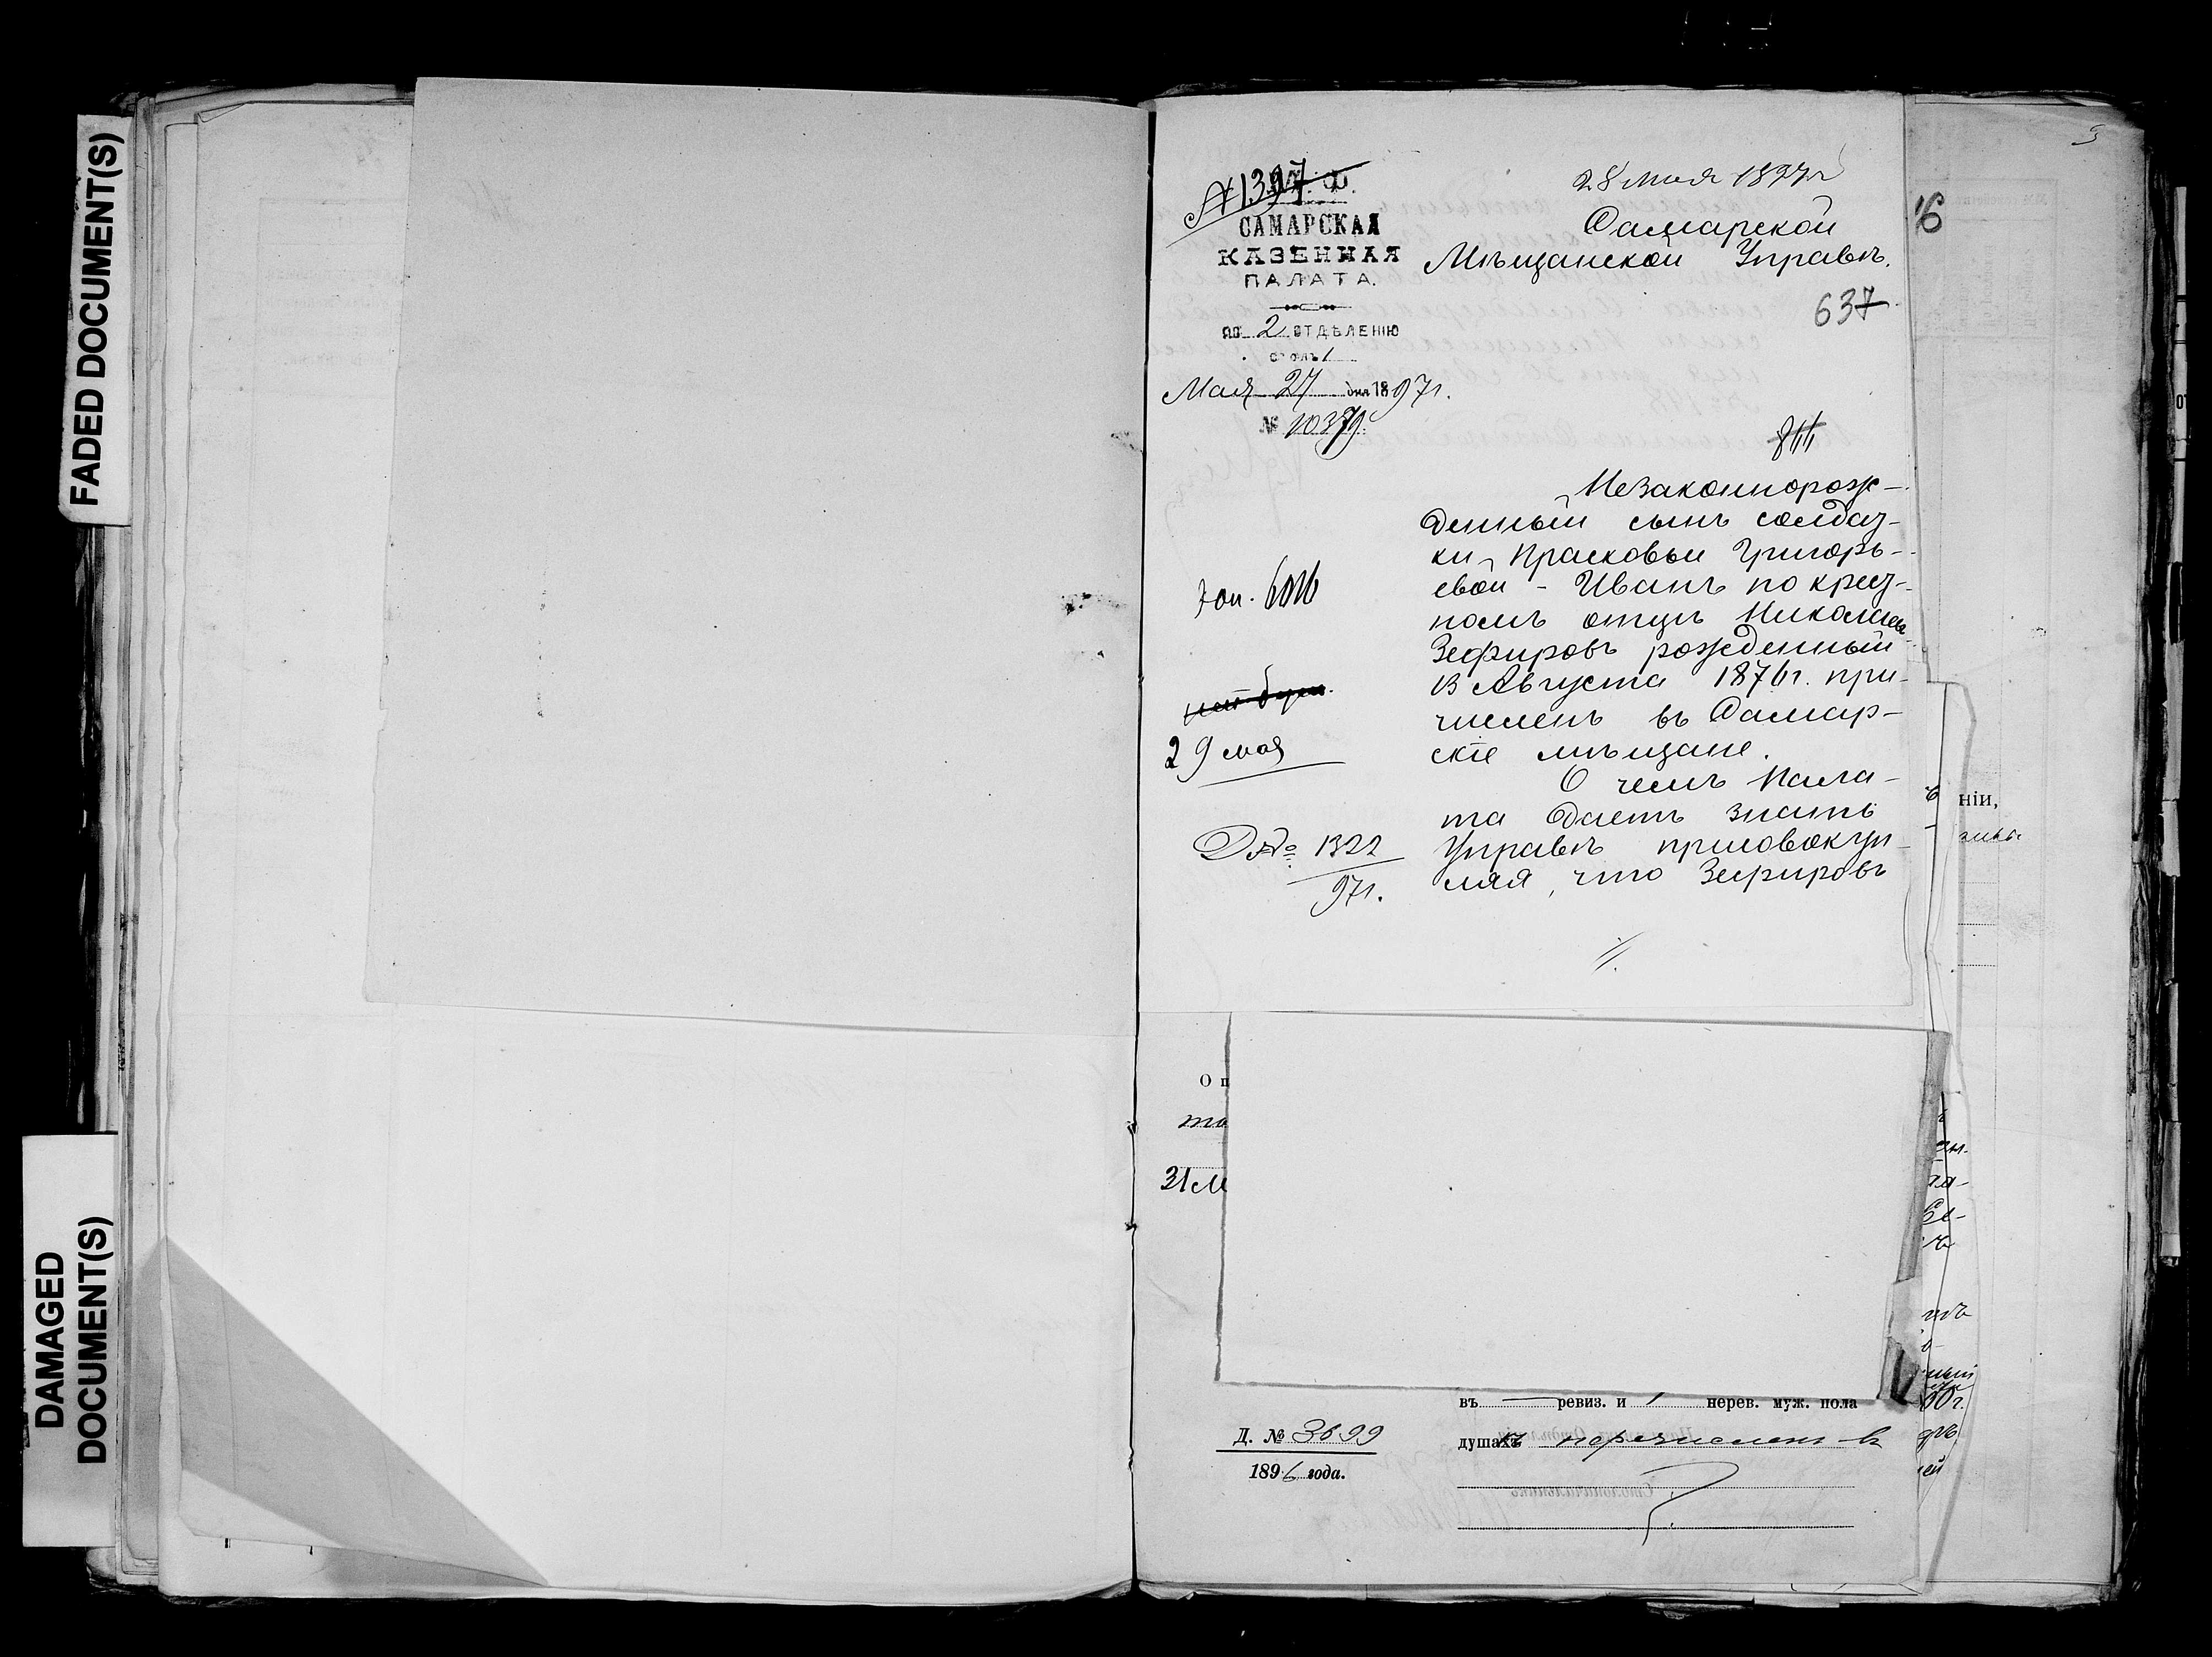 FADED DOCUMENT(S)
DAMAGED
DOCUMENT(S)
№ 1397
М. Ф.
САМАРСКАЯ
КАЗЕННАЯ
ПАЛАТА.
по 2 ОТДѢЛЕНІЮ
столъ 1
Мая 27 дня 1897г.
№ 10379.
28 мая 1897г
Самарской
Мѣщанской Управѣ.
637
844
Незаконнорож-
денный сынъ солдат-
ки Прасковьи Григорь-
евой - Иванъ по крест-
номъ отцѣ Николаевъ
Зефировъ рожденный
13 Августа 1876г. при-
численъ въ Самар-
скіе мѣщане.
О чемъ Пала-
та даетъ знать
Управѣ присовокуп-
ляя, что Зефировъ
29 мая
Д № 1322
97г.
О п
та
31 М
въ — ревиз. и 1 нерев. муж. пола
душахъ перечисленъ въ
Д. № 3699
1896 года.
ніи,